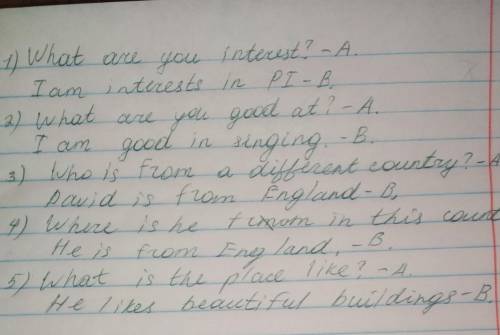 1) What are you interest? - A.
I am interests in PI - B.
2) What are you good at? - A.
I am good in singing. - B.
3) Who is from a different country? - A
David is from England - B.
4) Where is he from in this coun
He is from England. - B.
5) What is the place like? - A.
He likes beautiful buildings - B.